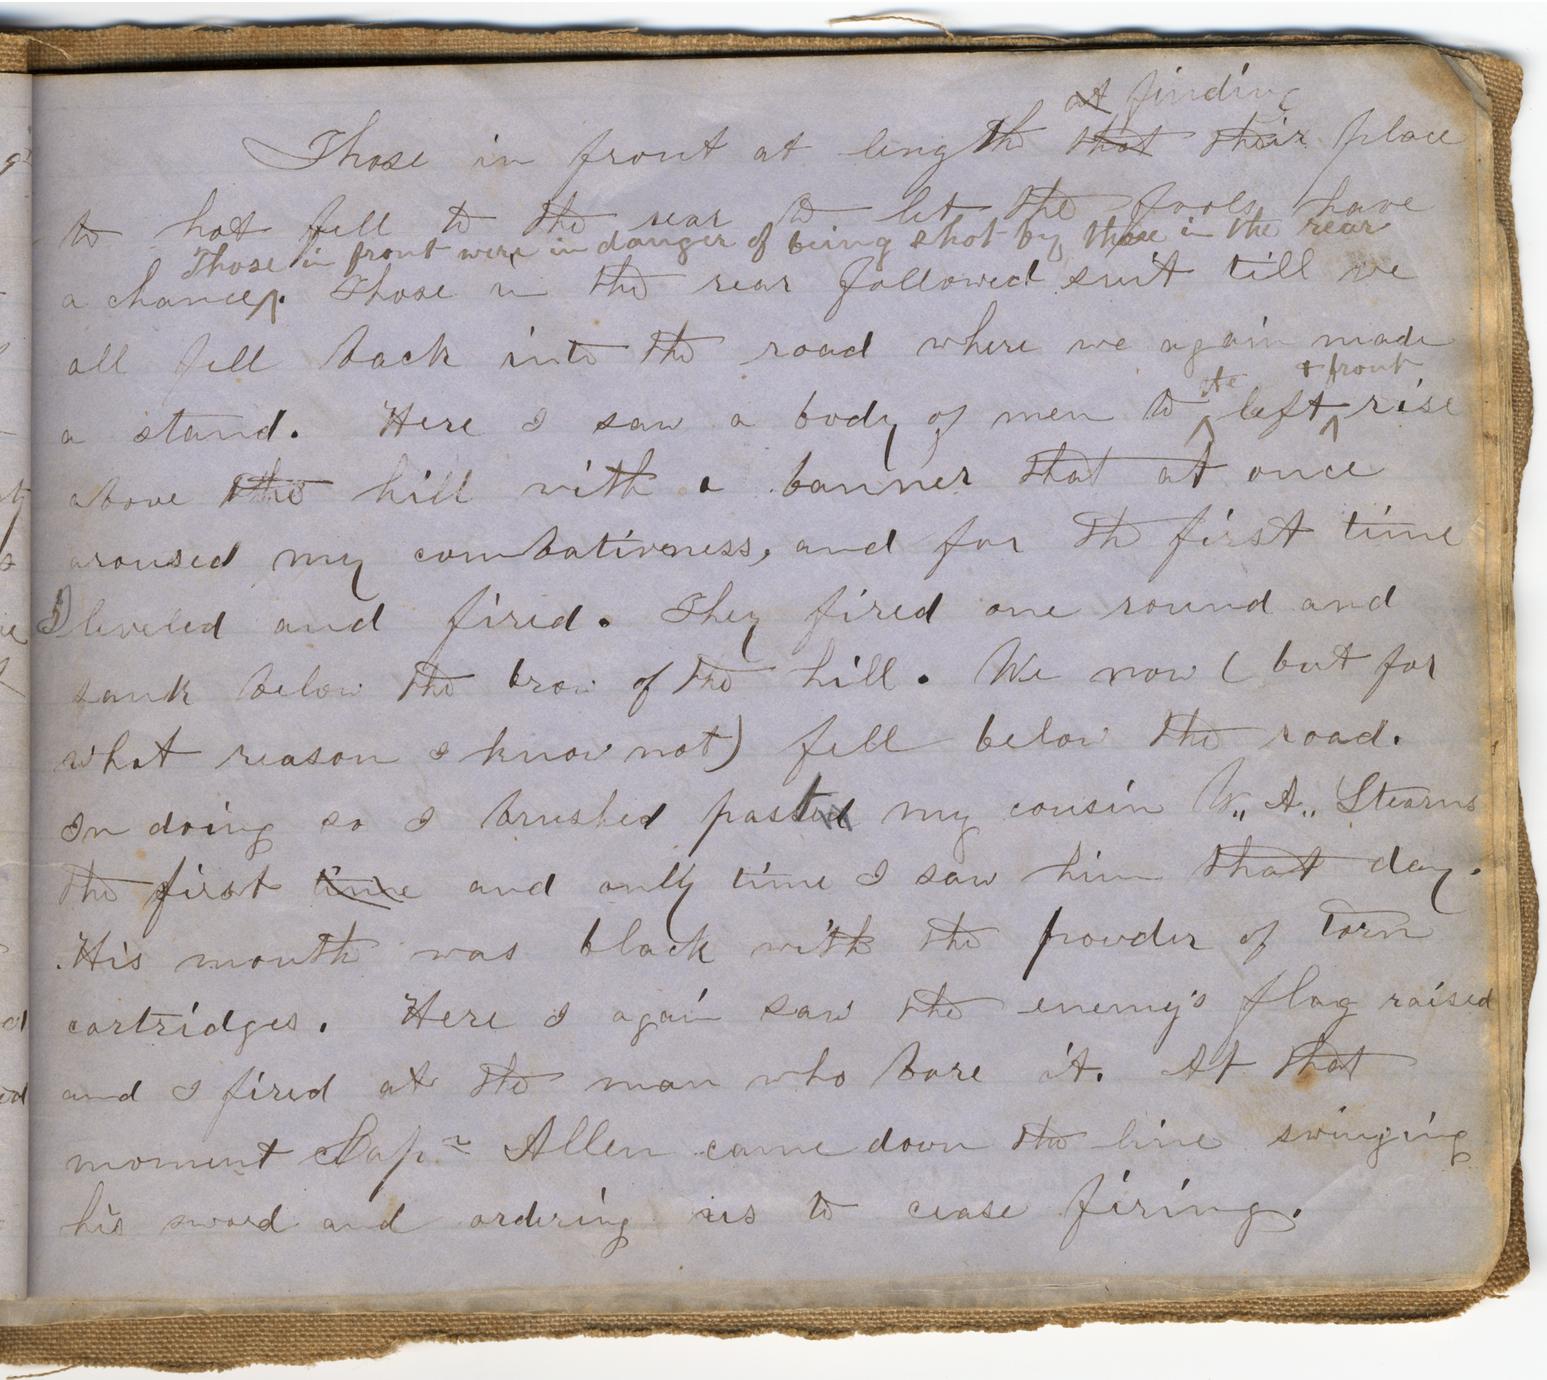 at finding
Those in front at length that their place
to hot fell to the rear to let the fools have
Those in front were in danger of being shot by those in the rear
a chance. Those in the rear followed suit till we
all fell back into the road where we again made
the & front
a stand. Here I saw a body of men to left rise
above the hill with a banner that at once
aroused my combativeness, and for the first time
I leveled and fired. They fired one round and
sank below the brow of the hill. We now (but for
what reason I know not) fell below the road.
In doing so I brushed pasted my cousin W. A. Stearns
the first time and only time I saw him that day.
His mouth was black with the powder of torn
cartridges. Here I again saw the enemy's flag raised
and I fired at the man who bore it. At that
moment Capn Allen came down the line swinging
his sword and ordering us to cease firing.